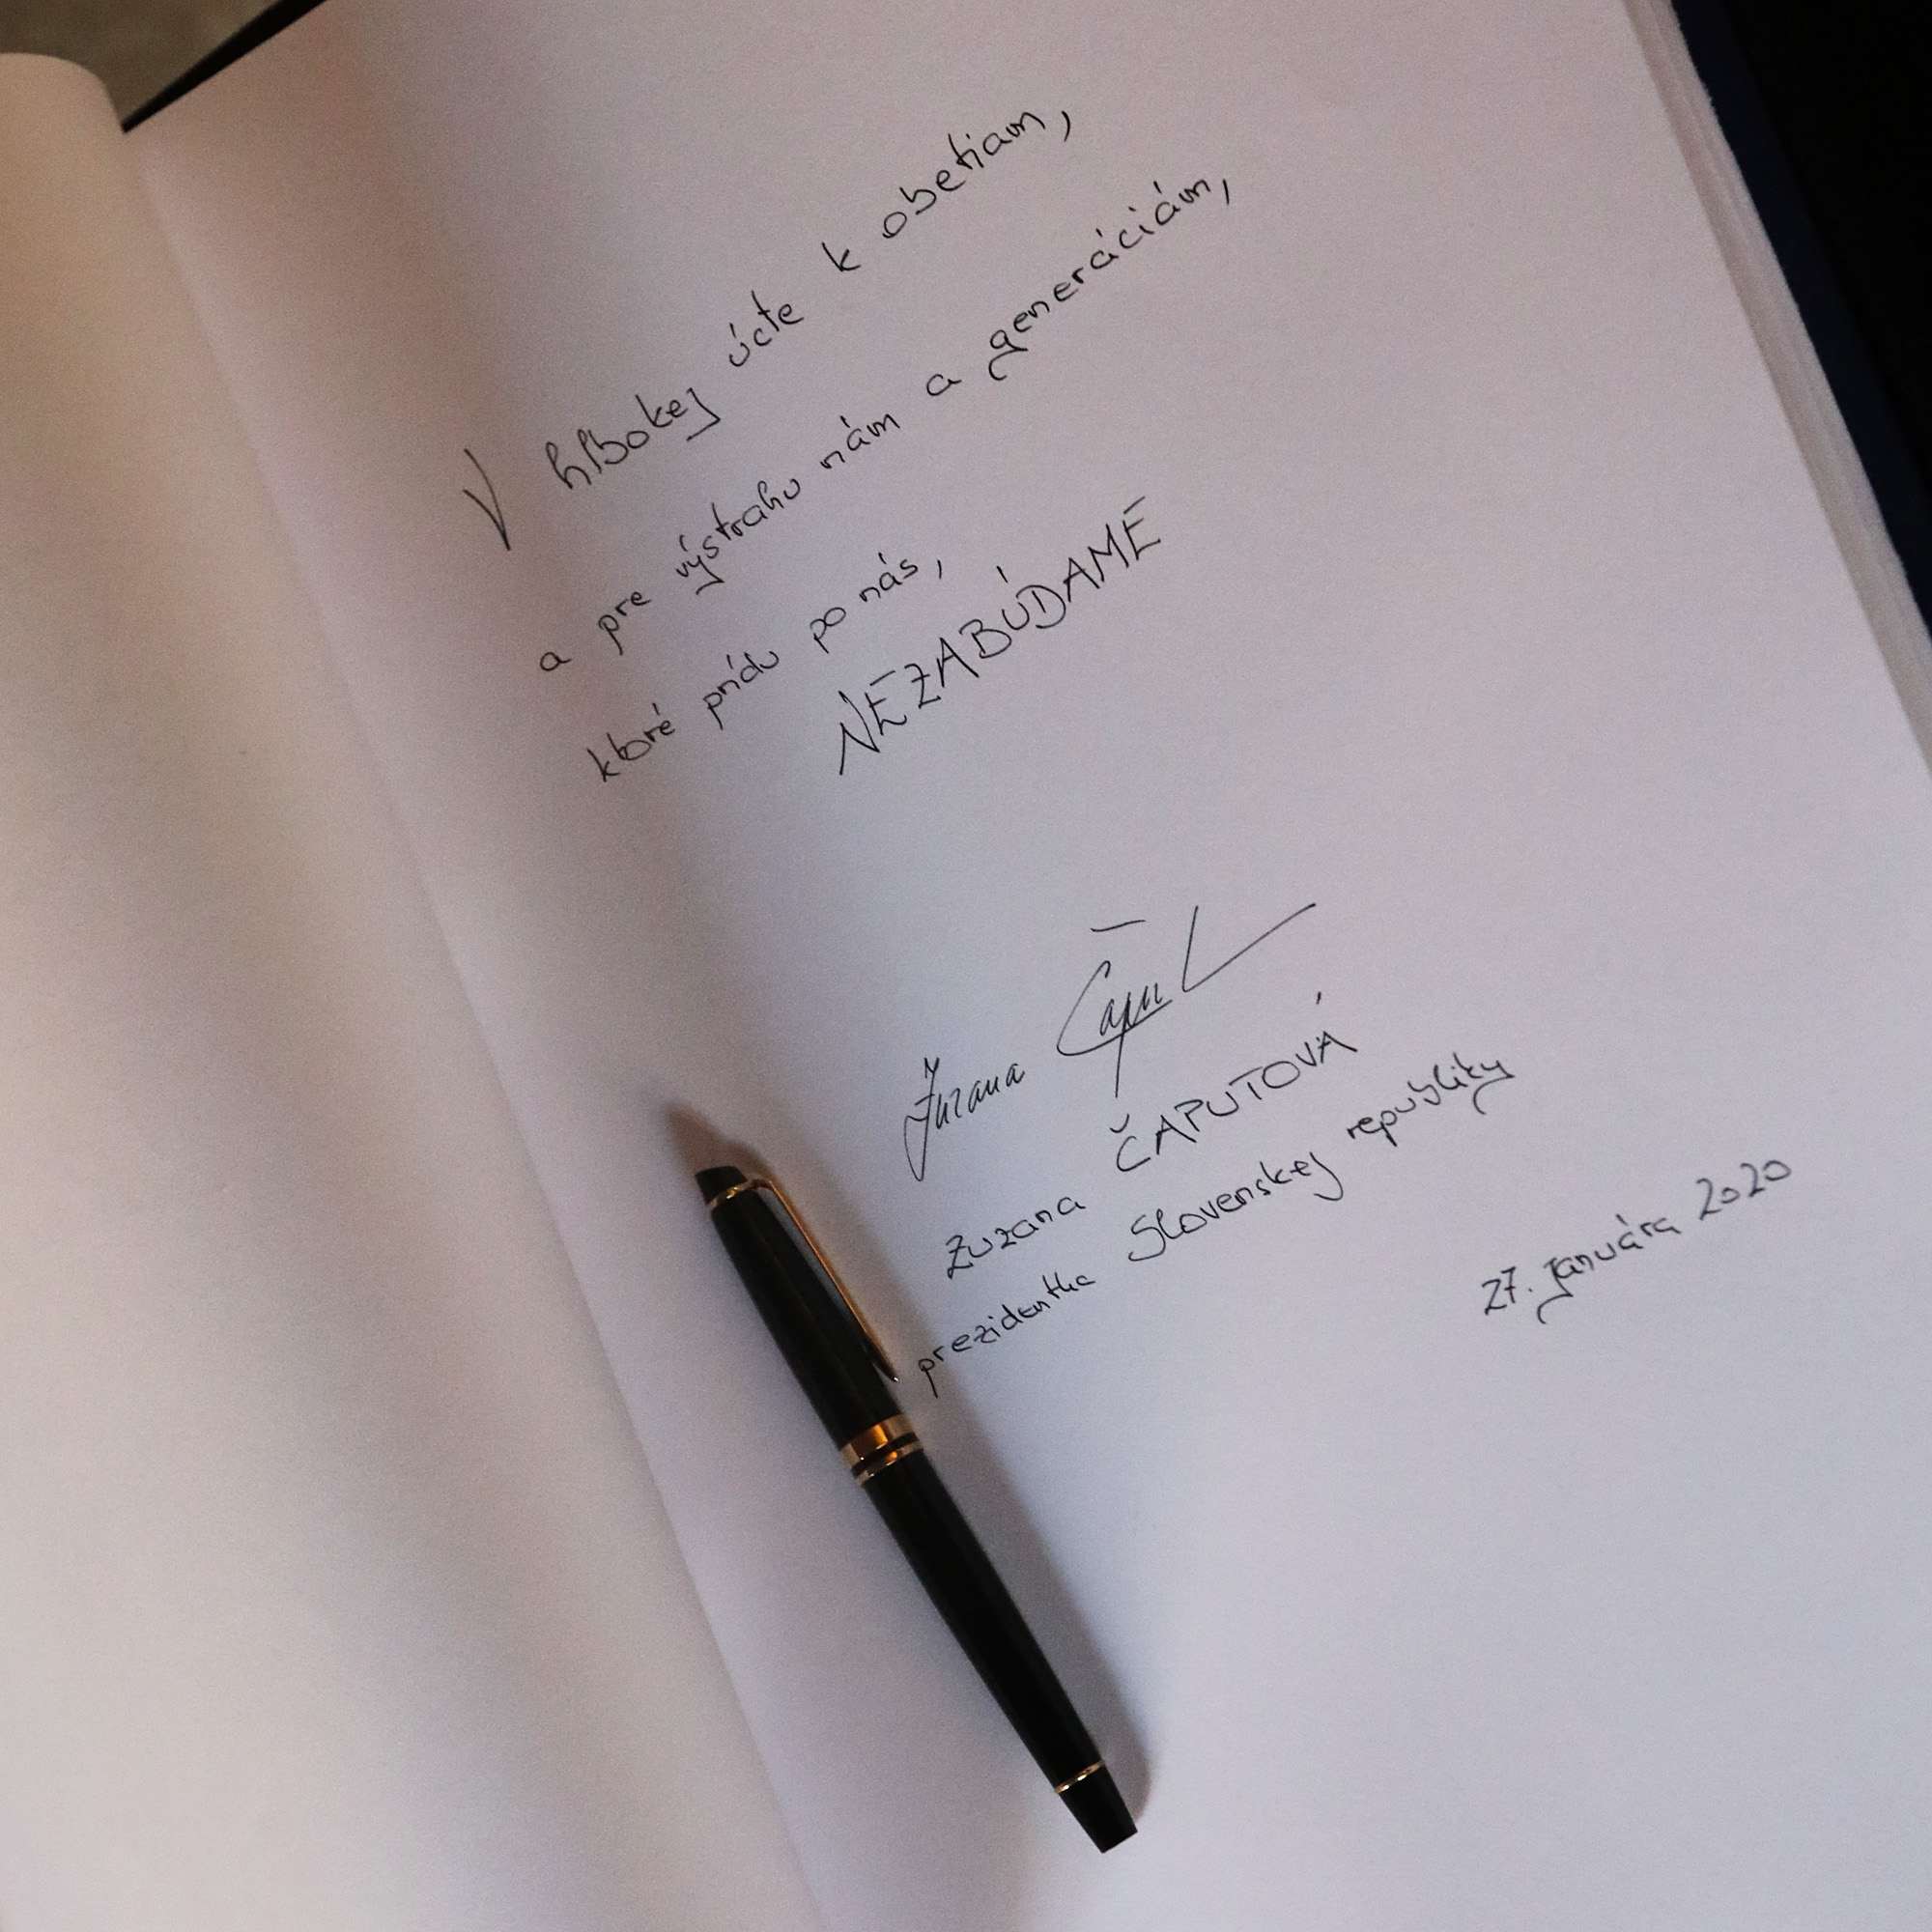 V hlbokej úcte k obetiam,
a pre výstrahu nám a generáciám,
ktoré prídu po nás,
NEZABÚDAME
Zuzana Čaput
Zuzana ČAPUTOVÁ
prezidentka Slovenskej republiky
27. januára 2020